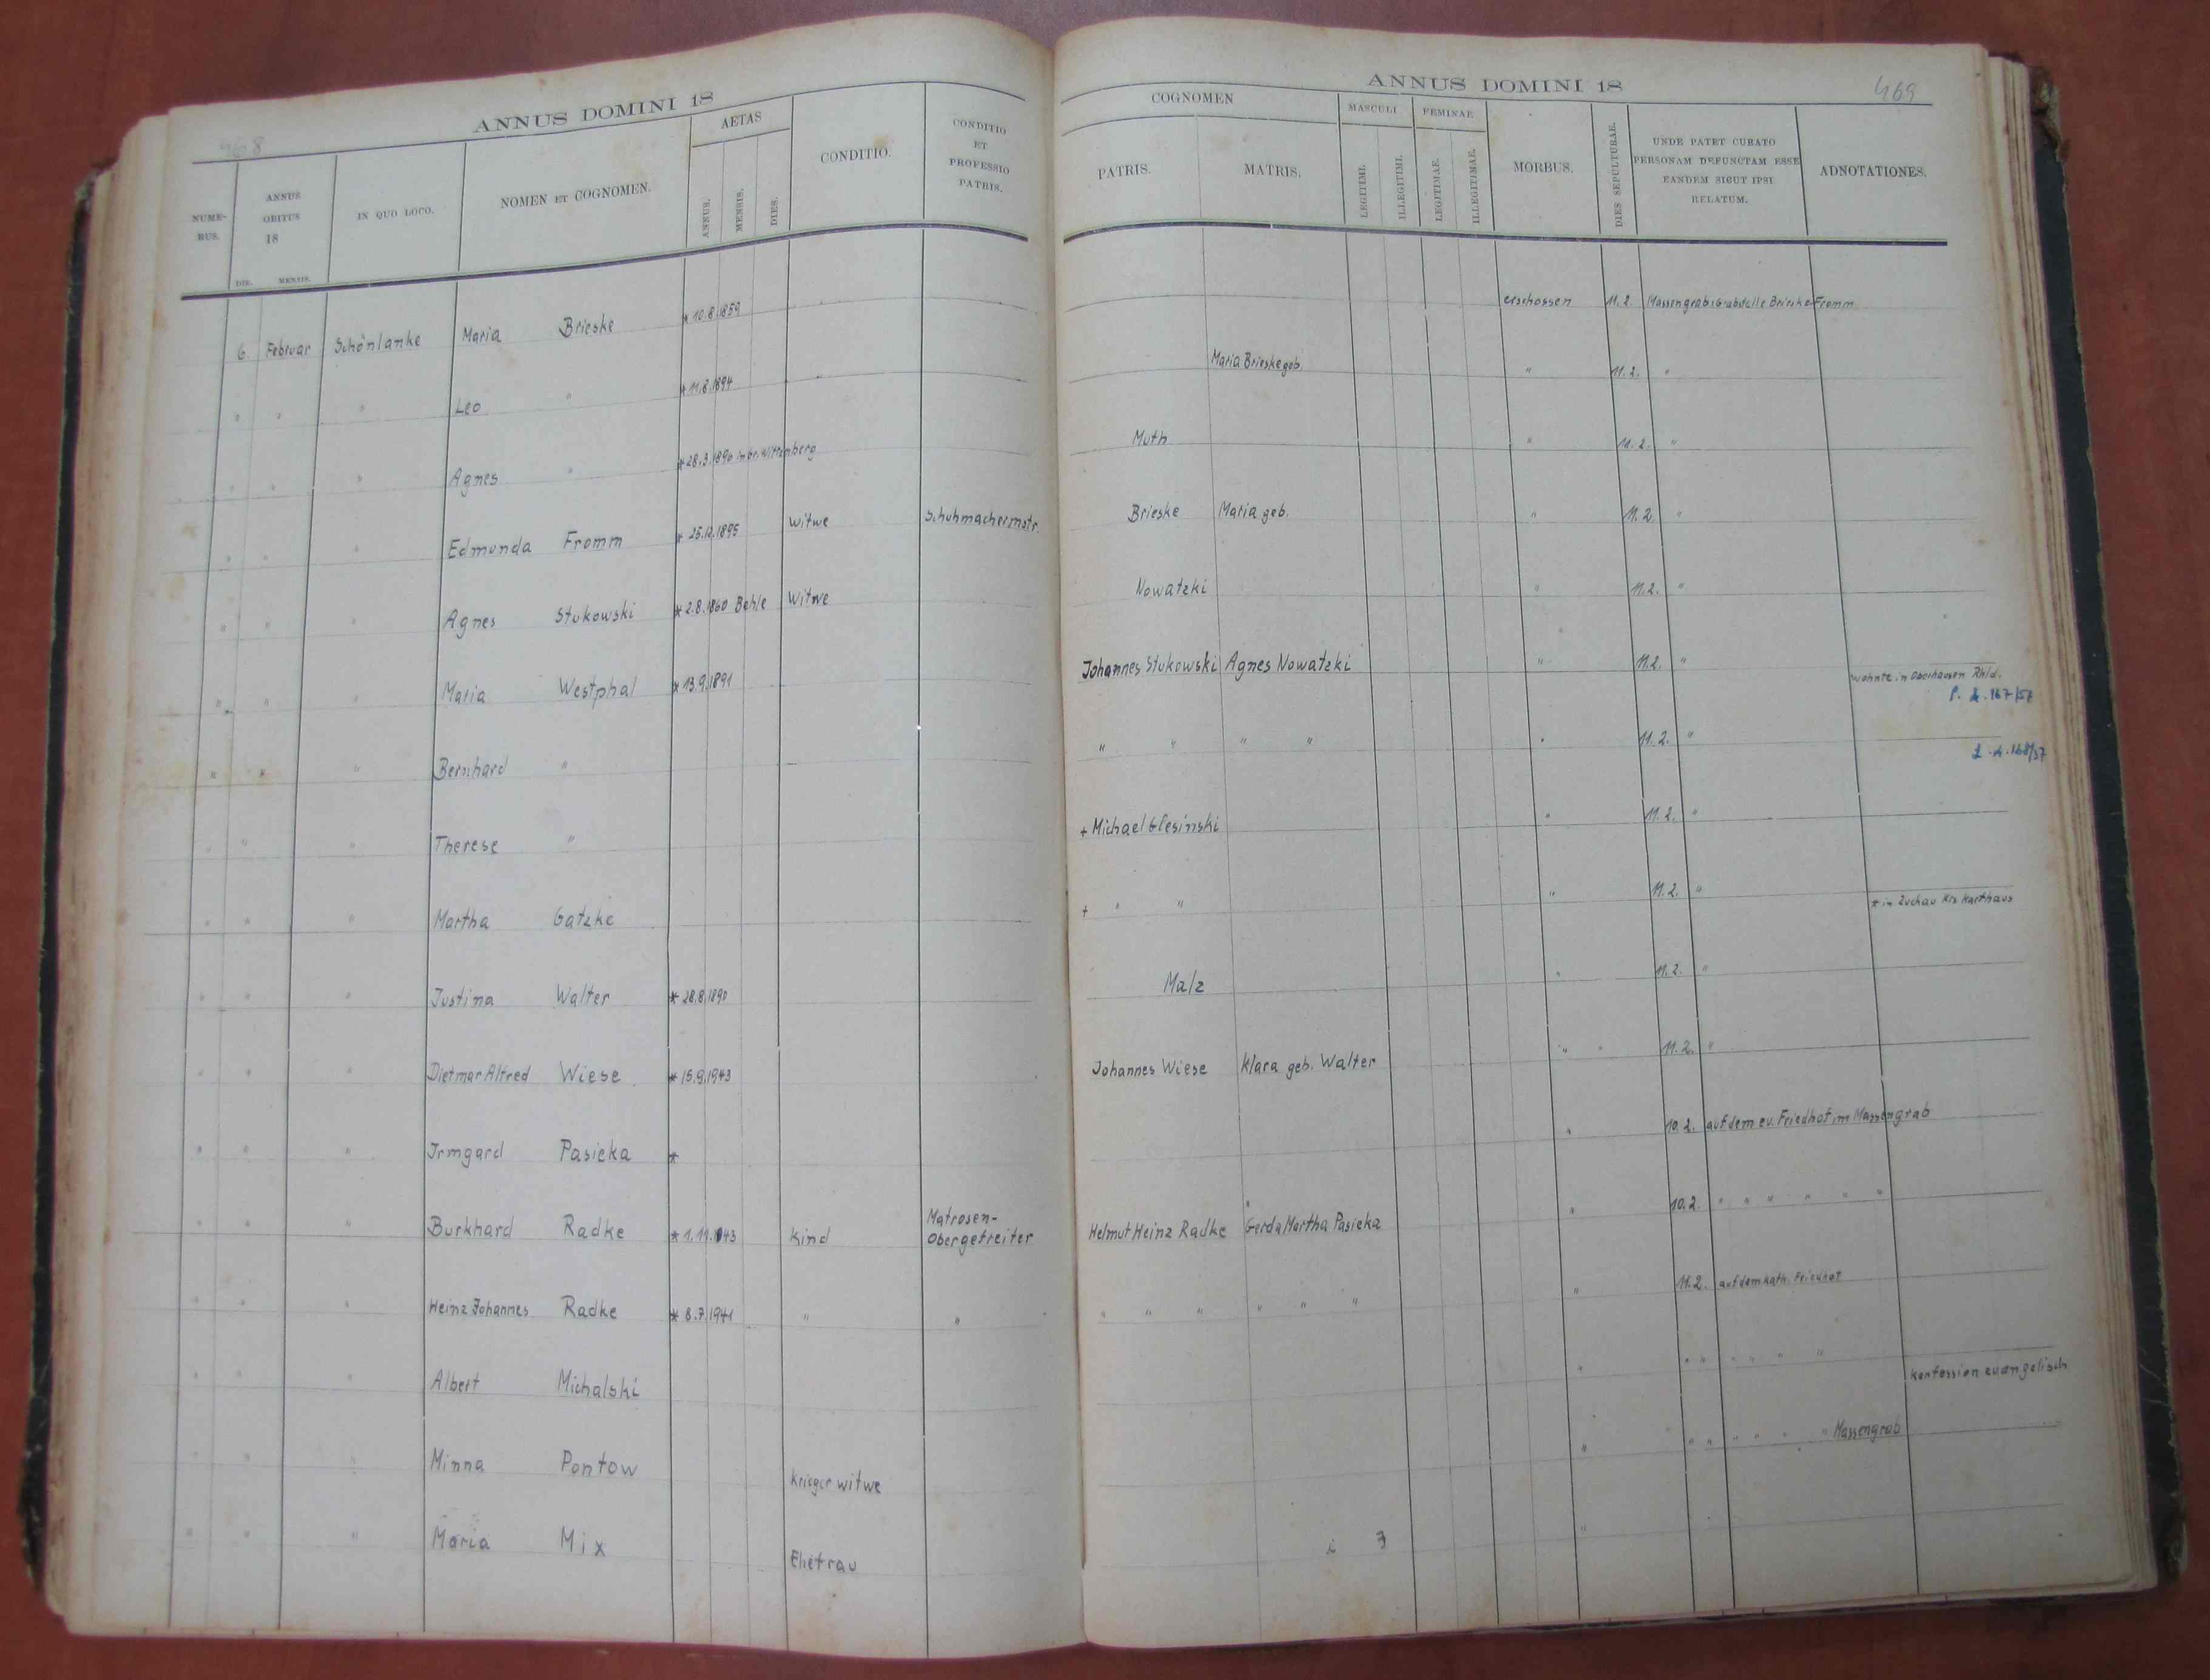 968
ANNUS DOMINI 18
NUME-
RUS.
ANNUS
OBITUS
18
DIE. MENSIS.
IN QUO LOCO.
NOMEN ET COGNOMEN.
AETAS
ANNUS. MENSIS. DIES.
CONDITIO.
CONDITIO
ET
PROFESSIO
PATRIS.
6. Februar Schönlanke Maria Brieske * 10.8.1859
" " " Leo " * 11.8.1894
" " " Agnes " * 28.3.1890 in br. Wittenberg
" " " Edmunda Fromm * 25.12.1895 Witwe Schuhmachermstr.
" " " Agnes Stukowski * 2.8.1860 Behle Witwe
" " " Maria Westphal * 13.9.1891
" " " Bernhard "
" " " Therese "
" " " Martha Gatzke
" " " Justina Walter * 28.8.1890
" " " Dietmar Alfred Wiese * 15.9.1943
" " " Irmgard Pasieka *
" " " Burkhard Radke * 1.11.1943 Kind Matrosen-
Obergefreiter
" " " Heinz Johannes Radke * 8.7.1941 " "
" " " Albert Michalski
" " " Minna Pontow Krieger witwe
" " " Maria Mix Ehefrau
ANNUS DOMINI 18
469
COGNOMEN
PATRIS. MATRIS.
MASCULI
LEGITIMI. ILLEGITIMI.
FEMINAE
LEGITIMAE. ILLEGITIMAE.
MORBUS.
DIES SEPULTURAE.
UNDE PATET CURATO
PERSONAM DEFUNCTAM ESSE
EANDEM SICUT IPSI
RELATUM.
ADNOTATIONES.
erschossen 11.2. Massengrab: Grabstelle Brieske-Fromm
Maria Brieske geb. " 11.2. "
Muth " 11.2. "
Brieske Maria geb. " 11.2. "
Nowatzki " 11.2. "
Johannes Stukowski Agnes Nowatzki " 11.2. " wohnte in Oberhausen Rhld.
167/57
" " " " " 11.2. " 168/57
+ Michael Glesinski " 11.2. "
+ " " " 11.2. " * in Zuckau Krs Karthaus
Malz " 11.2. "
Johannes Wiese Klara geb. Walter " " 11.2. "
" 10.2. auf dem ev. Friedhof im Massengrab
Helmut Heinz Radke Gerda Martha Pasieka " 10.2. " " " " " "
" " " " " " " 11.2. auf dem kath. Friedhof
" " " " " " " Konfession evangelisch
" " " " " " " Massengrab
"